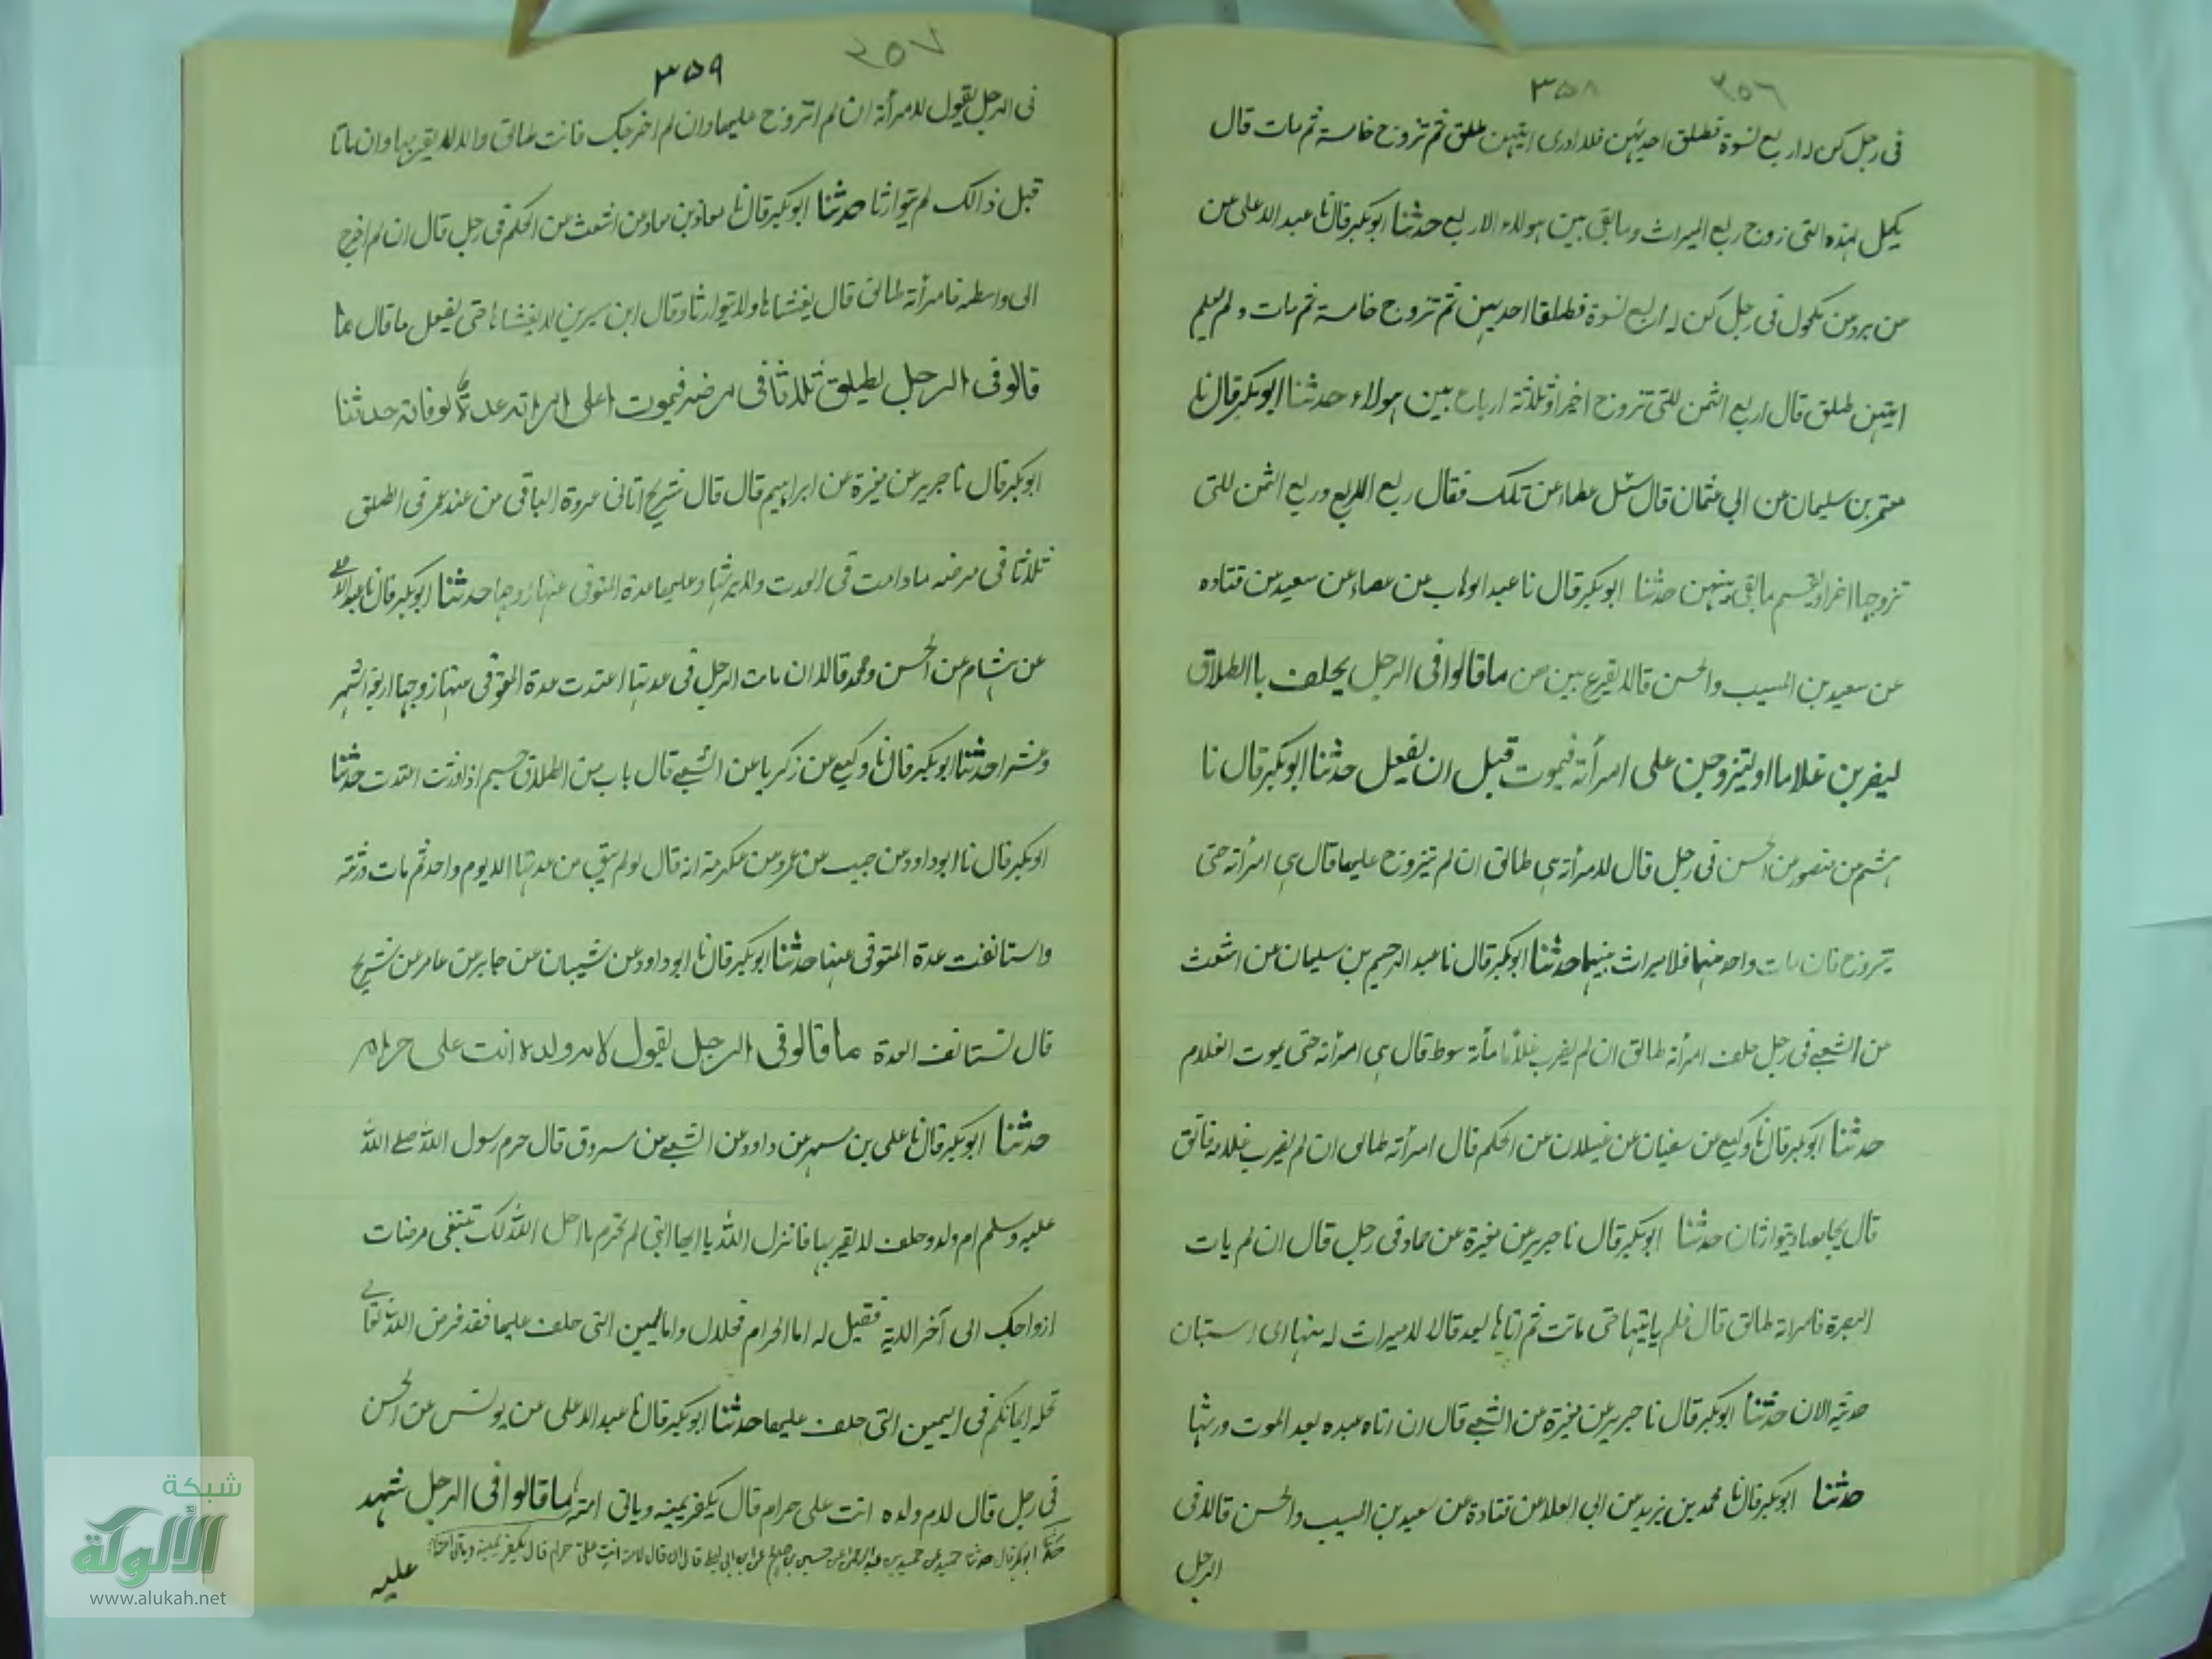 ٣٥٦ ٣٥٨
فى رجل كن له اربع نسوة فطلق احديهن فلا ادرى ايتهن طلق ثم تزوج خامسة ثم مات قال
يكمل لهذه التى زوج ربع الميراث وما بقى بين هولاء الاربع حدثنا ابوبكر قال نا عبد الاعلى عن
عن برد عن مكحول فى رجل كن له اربع نسوة فطلقا احديهن ثم تزوج خامسة ثم مات و لم يعلم
ايتهن طلق قال اربع الثمن للتى تزوج اخيرا وثلاثة ارباع بين هولاء حدثنا ابوبكر قال نا
معتمر بن سليمان عن ابي عثمان قال سئل عطاء عن تلك فقال ربع الربع وربع الثمن للتى
تزوجها اخرا ويقسم ما بقى بينهن حدثنا ابوبكر قال نا عبد الوهاب عن عطاء عن سعيد عن قتاده
عن سعيد بن المسيب والحسن قالا يقرع بين من ما قالوا فى الرجل يحلف باالطلاق
ليضربن غلاما اوليتزوجن على امرأته فيموت قبل ان يفعل حدثنا ابوبكر قال نا
هشم عن منصور عن الحسن فى رجل قال لامرأته هى طالق ان لم تيزوج عليها قال هى امرأته حتى
يتزوج فان مات واحد منهما فلا ميراث بينهما حدثنا ابوبكر قال نا عبد الرحيم بن سليمان عن اشعث
عن الشعبے فى رجل حلف امرأته طالق ان لم يضرب غلاما مأة سوط قال هى امرأته حتى يموت الغلام
حدثنا ابوبكر قال نا وكيع عن سفيان عن غيلان عن الحكم قال امرأته طالق ان لم يضرب غلامه فابق
قال يجامعها ويتوارثان حدثنا ابوبكر قال نا جرير عن مغيرة عن حماد فى رجل قال ان لم يات
البصرة فامراته طالق قال فلم ياتيها حتى ماتت ثم اتاها بعد قالا لا ميراث له منها اى استبان
حديثه الان حدثنا ابوبكر قال نا جرير عن مغيرة عن الشعبے قال ان اتاه عبده بعد الموت ورثها
حدثنا ابوبكر قال نا محمد بن يزيد عن ابى العلا عن قتادة عن سعيد بن المسيب والحسن قالا فى
الرجل
٣٥٧ ٣٥٩
فى الرجل يقول لامرأته ان لم اتزوج عليها وان لم اخرجك فانت طالق والا لا يقربها وان ماتا
قبل ذالك لم يتوارثا حدثنا ابوبكر قال نا معاذ بن معاذ عن اشعث عن الحكم فى رجل قال ان لم اخرج
الى واسطه فامرأته طالق قال يغشاها ولا يتوارثا وقال ابن سيرين لا يغشاها حتى يفعل ما قال ما
قالو فى الرجل يطيلق ثلاثا فى مرضه فيموت اعلى امراته عدة لوفاته حدثنا
ابوبكر قال نا جرير عن مغيرة عن ابراهيم قال قال شريح اتانى عروة الباقى من عند عمر فى المطلق
ثلاثا فى مرضه ما دامت فى العدت ولا يرثها وعليها عدة المتوفى عنها زوجها حدثنا ابوبكر قال نا عبد الاعلى
عن هشام عن الحسن ومحمد قالا ان مات الرجل فى عدتها اعتدت عدة المتوفى عنها زوجها اربعة اشهر
وعشرا حدثنا ابوبكر قال نا وكيع عن زكريا عن الشعبے قال باب من الطلاق جسيم اذا ورثت اعتدت حدثنا
ابوبكر قال نا ابوداود عن حبيب عن عمرو عن عكرمة انه قال لو لم يبق من عدتها الا يوم واحد ثم مات ورثته
واستانفت عدة المتوفى عنها حدثنا ابوبكر قال نا ابوداود عن شيبان عن جابر عن عامر عن شريح
قال تستانف العدة ما قالو فى الرجل يقول لام ولده انت على حرام
حدثنا ابوبكر قال نا على بن مسهر عن داود عن الشعبے عن مسروق قال حرم رسول الله صلے الله
عليه وسلم ام ولده وحلف لا يقربها فانزل الله يا ايها النبى لم تحرم ما احل الله لك تبتغى مرضات
ازواجك الى آخر الاية فقيل له اما الحرام فحلال واما اليمين التى حلف عليها فقد فرض الله تعالے
تحلة ايمانكم فى اليمين التى حلف عليها حدثنا ابوبكر قال نا عبد الاعلى عن يونس عن الحسن
فى رجل قال لام ولده انت على حرام قال يكفر يمينه وياتى امته ما قالوا فى الرجل شهد
حدثنا ابوبكر قال حدثنا حميد عن حميد بن عبد الرحمن عن حسين بن صالح عن ابن ابى ليلى قال ان قال لامته انت على حرام قال يكفر يمينه وياتى
عليه
شبكة
الألوكة
www.alukah.net